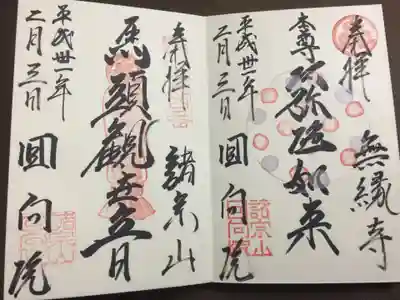 奉拝
無縁寺
本尊阿弥陀如来
平成卅一年
二月三日
回向院
奉拝
諸宗山
馬頭観世音
平成卅一年
二月三日
回向院
諸宗山
回向院